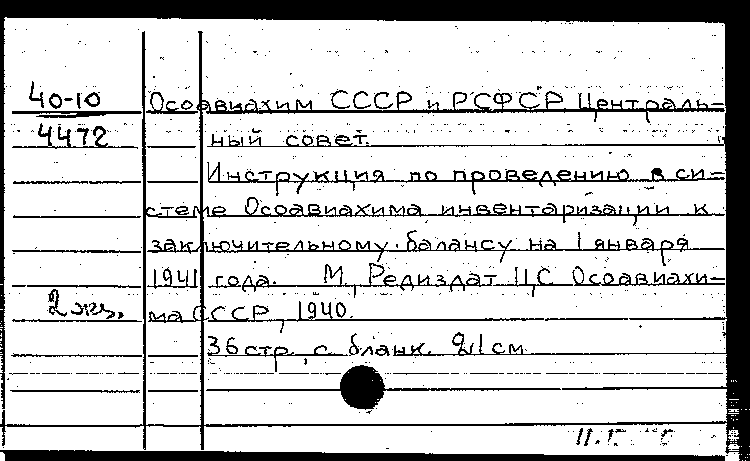 40-10
4472
Осоавиахим СССР и РСФСР Централь-
ный совет.
Инструкция по проведению в си-
стеме Осоавиахима инвентаризации к
заключительному балансу на 1 января
1941 года. М., Редиздат ЦС Осоавиахи-
ма СССР, 1940.
2 экз.
36 стр. с бланк. см